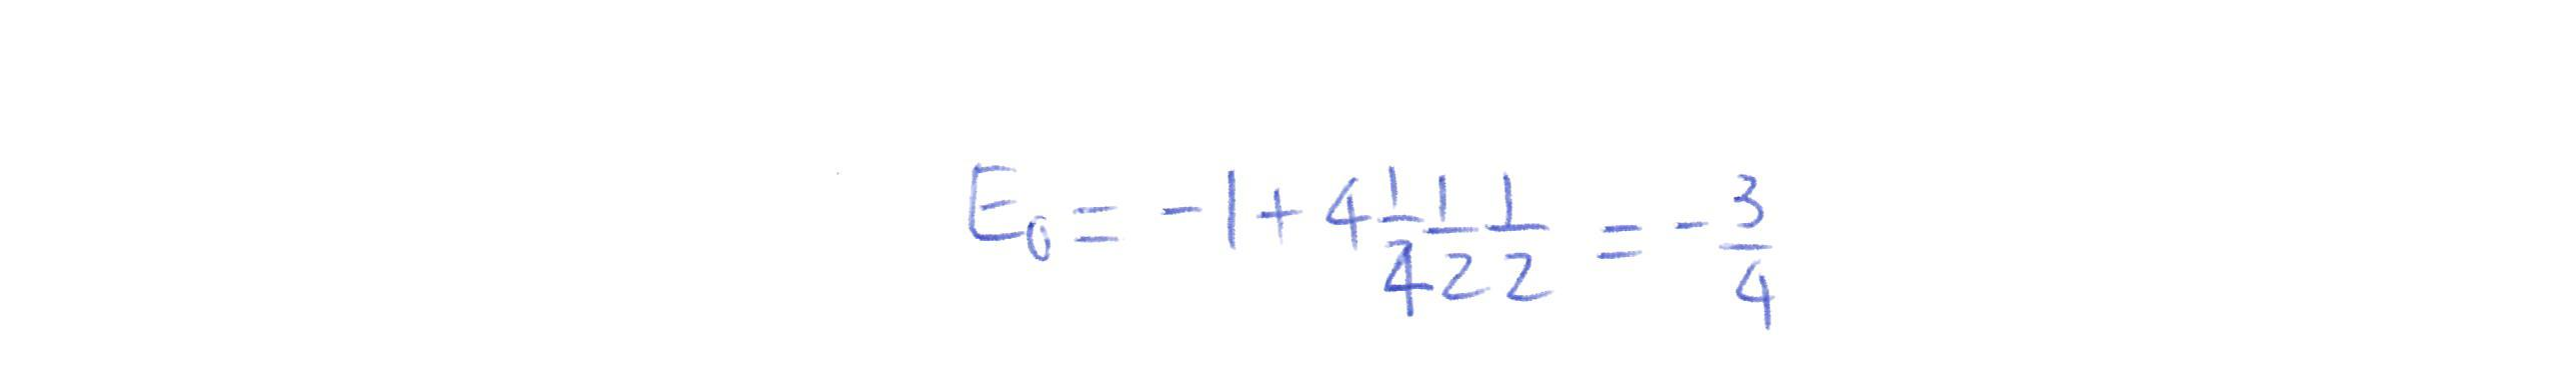 E₀ = -1 + 4 \frac{1}{4} \frac{1}{2} \frac{1}{2} = -\frac{3}{4}